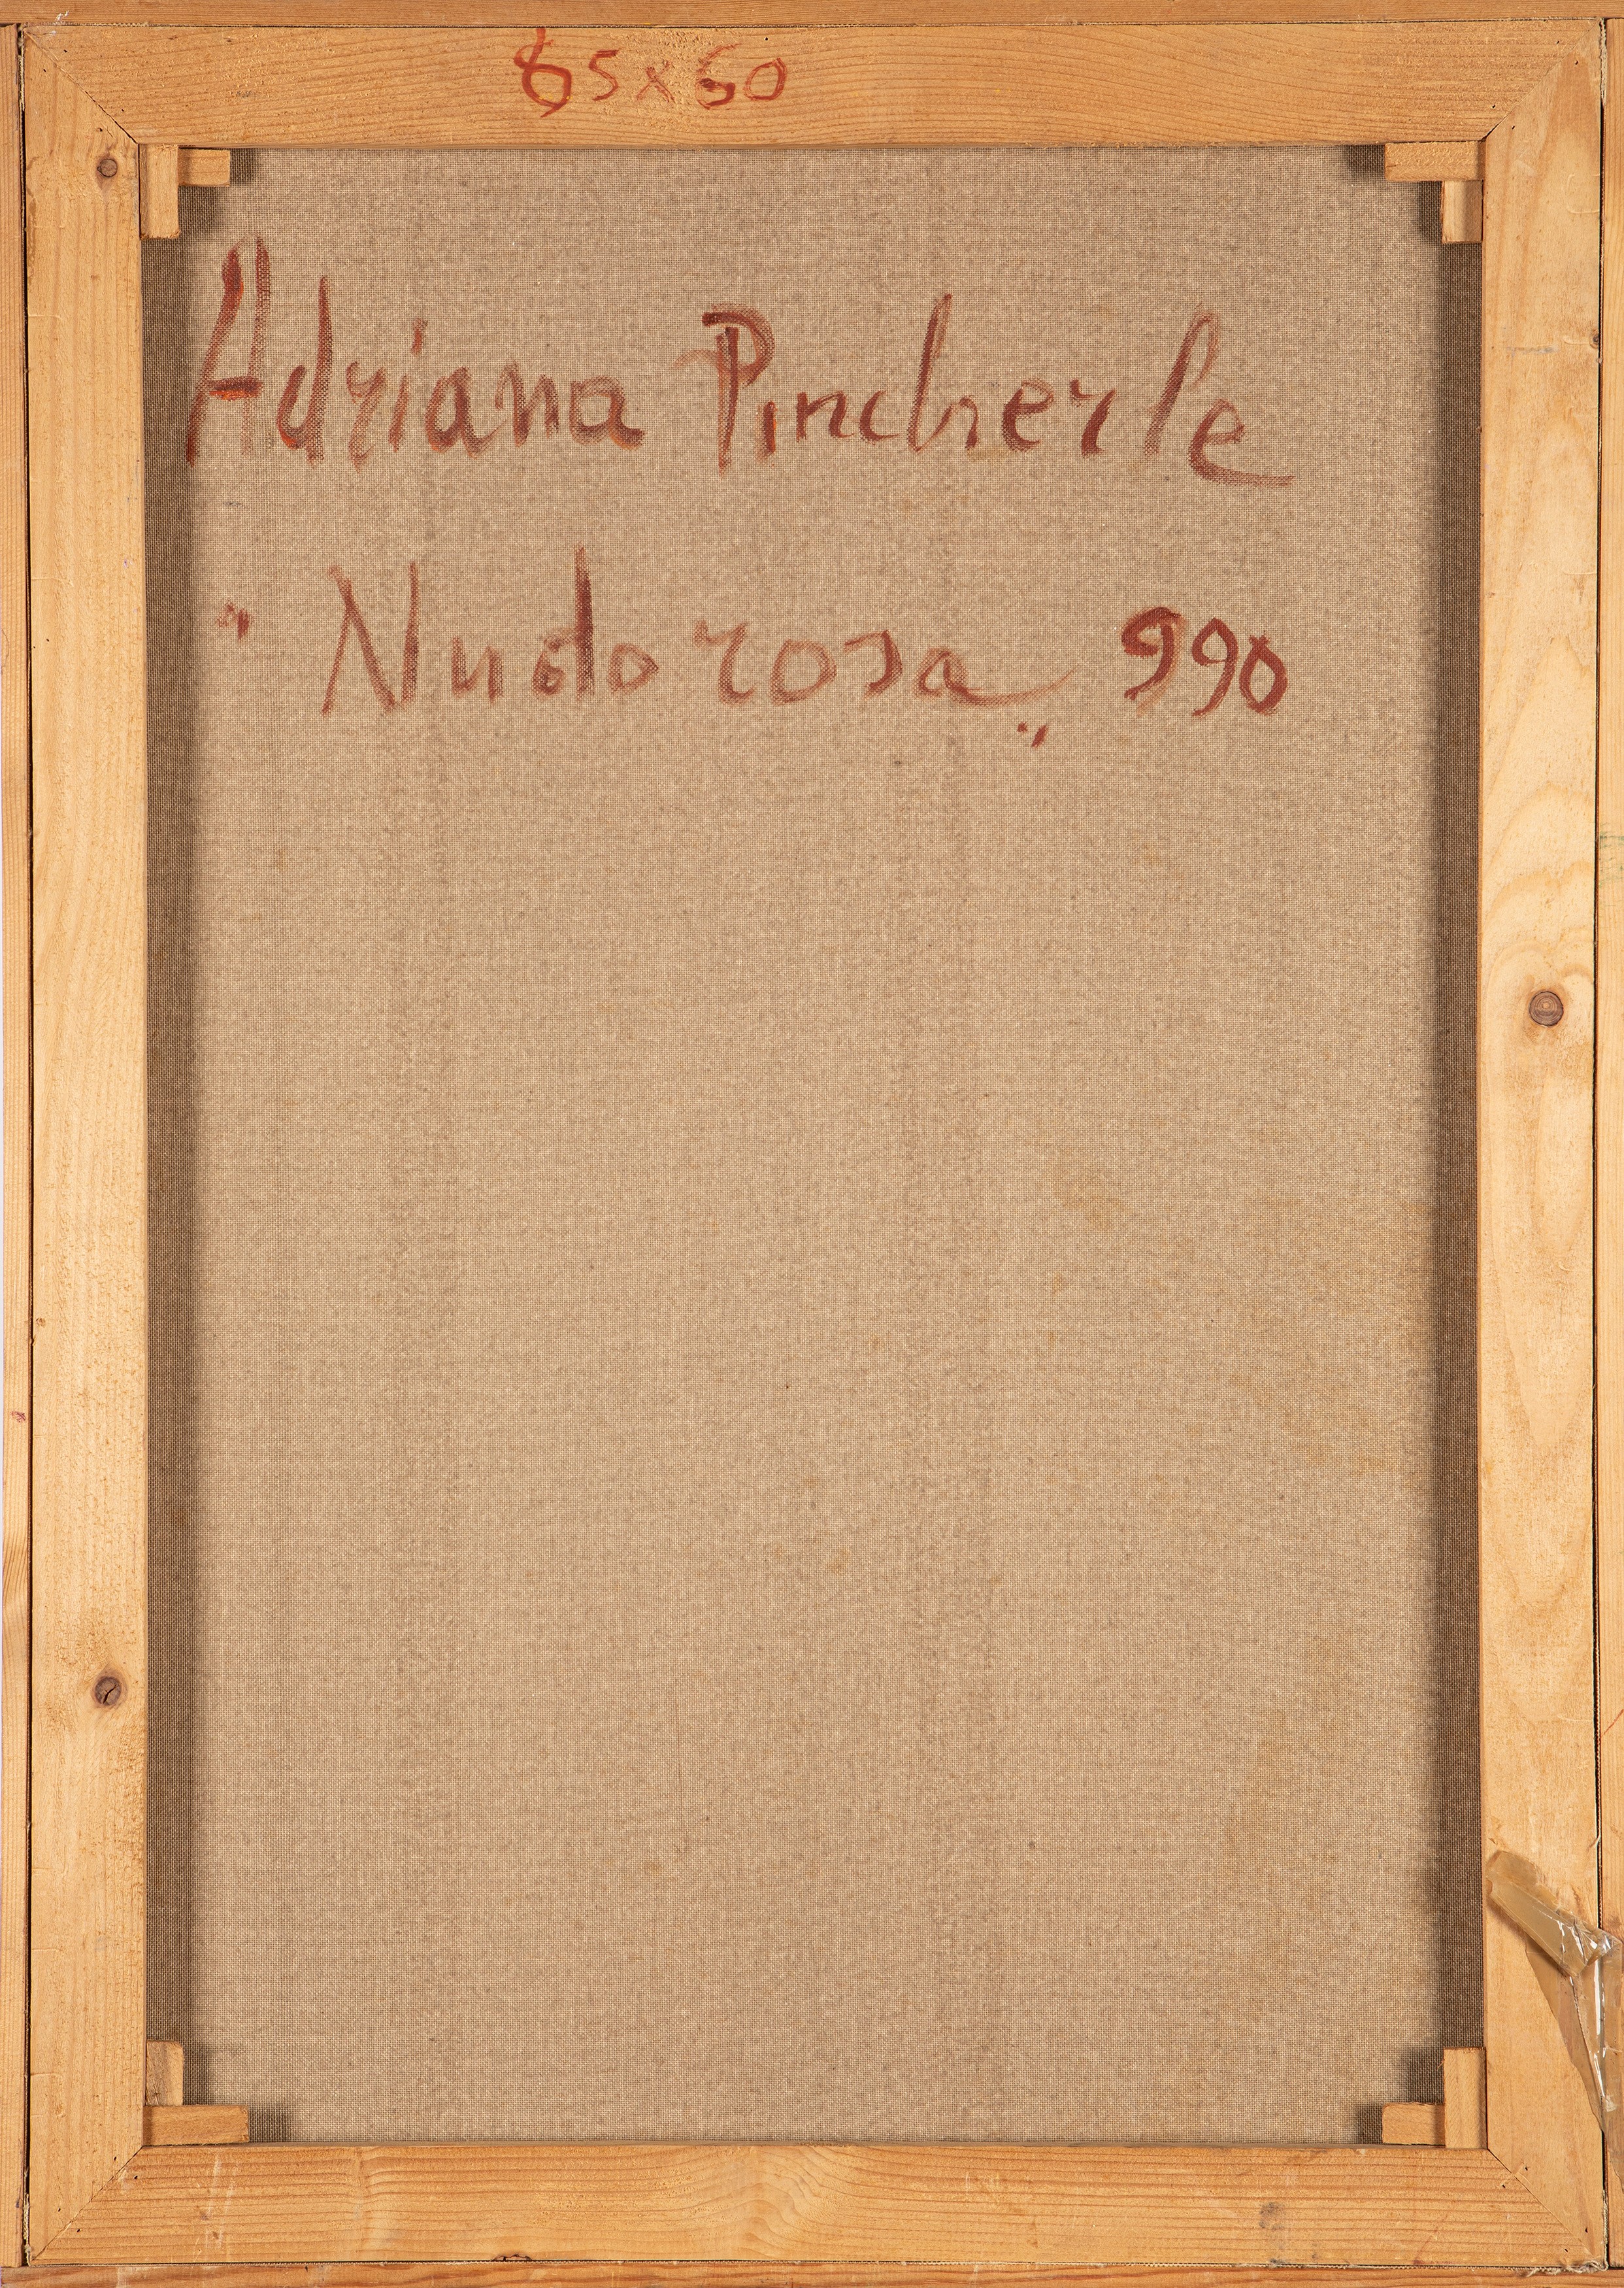 85x60
Adriana Pincherle
"Nudo rosa" 990